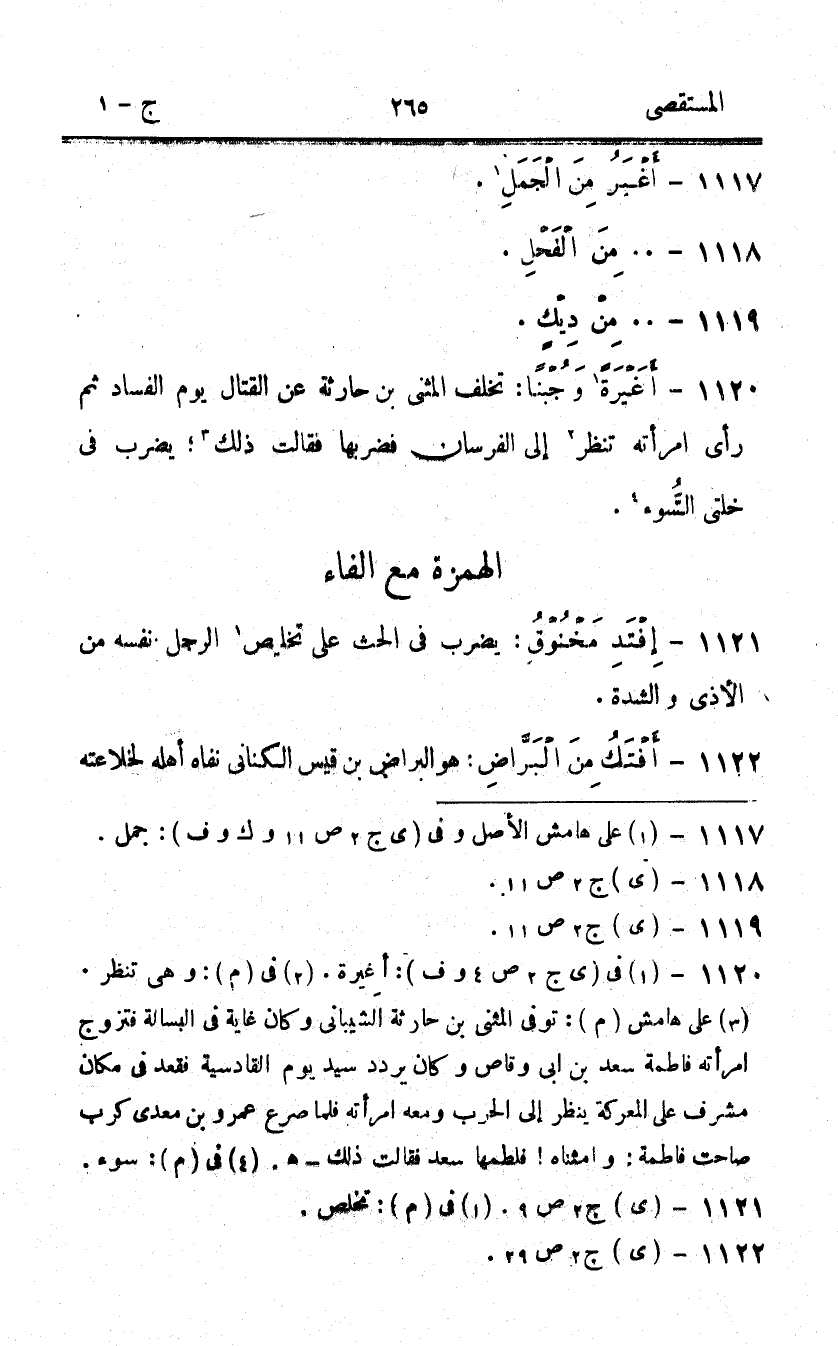 المستقصى ٢٦٥ ج - ١
١١١٧ - أَغْيَرُ مِنَ الْجَمَلِ١ .
١١١٨ - .. مِنَ الْفَحْلِ .
١١١٩ - .. مِنْ دِيْكٍ .
١١٢٠ - أَغَيْرَةً١ وَجُبْنًا : تخلف المثنى بن حارثة عن القتال يوم الفساد ثم
رأى امرأته تنظر٢ إلى الفرسان فضربها فقالت ذلك٣ ؛ يضرب فى
خلتى السُّوء٤ .
الهمزة مع الفاء
١١٢١ - إِفْتَدِ مَخْنُوْقُ : يضرب فى الحث على تخليص١ الرجل نفسه من
الأذى و الشدة .
١١٢٢ - أَفْتَكُ مِنَ الْبَرَّاضِ : هو البراض بن قيس الكنانى نفاه أهله لخلاعته
١١١٧ - (١) على هامش الأصل و فى (ى ج ٢ ص ١١ و ك و ف ) : جمل .
١١١٨ - (ى ) ج ٢ ص ١١ .
١١١٩ - (ى ) ج ٢ ص ١١ .
١١٢٠ - (١) فى (ى ج ٢ ص ٤ و ف ) : أغيرة . (٢) فى (م ) : و هى تنظر .
(٣) على هامش (م ) : توفى المثنى بن حارثة الشيبانى وكان غاية فى البسالة فتزوج
امرأته فاطمة سعد بن ابى وقاص وكان يردد سيد يوم القادسية فقعد فى مكان
مشرف على المعركة ينظر إلى الحرب ومعه امرأته فلما صرع عمرو بن معدى كرب
صاحت فاطمة : وامثناه ! فلطمها سعد فقالت ذلك - ه . (٤) فى (م ) : سوء .
١١٢١ - (ى ) ج ٢ ص ٩ . (١) فى (م ) : تخلص .
١١٢٢ - (ى ) ج ٢ ص ٢٩ .